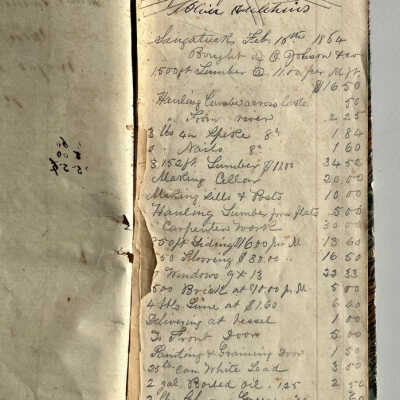 Saugatuck, Feb. 10th 1864
Bought of O. Johnson & co
1,500 ft Lumber @ 11.00 per M. ft.
$16.50
Hauling Lumber across Lake 50
" From river 2.25
3 lbs 4 in Spike 8c 1.84
" Nails 8c 1.60
3,152 ft Lumber $11.00 34.52
Making Cellar 20.00
Making Sills & Posts 10.00
Hauling Lumber from flats 5.00
Carpenters Work 30.00
850 ft Siding $16.00 per M 13.60
550 Flooring $30.00 " 16.50
7 Windows 9 x 13 22.33
500 Brick at 10.00 pr. M. 5.00
4 bbls Lime at $1.60 6.40
Delivering at Vessel 1.00
To Front Door 5.00
Painting & Graining Door 1.50
25 lb Can White Lead 3.50
2 gal. Boiled Oil 1.25 2.50